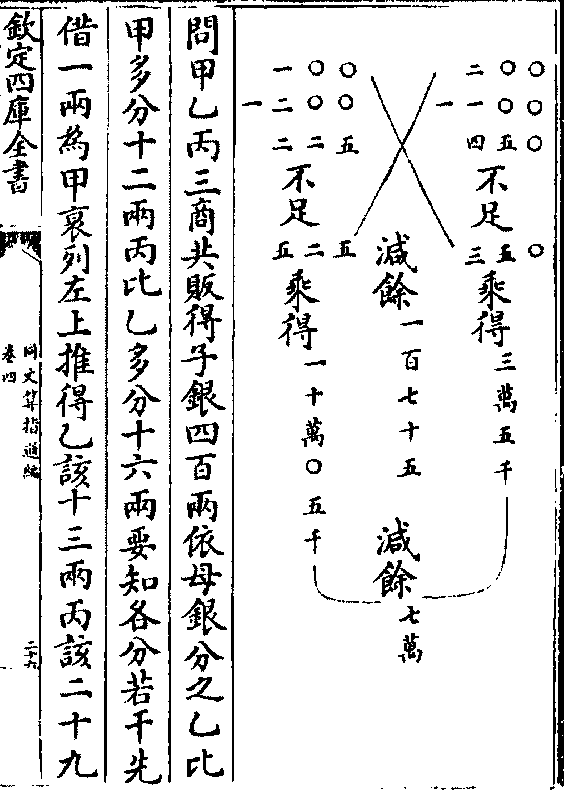 二○○
一一○○
四五○
不足
三五○
乘得三萬五千
減餘一百七十五
減餘七萬
一○○
一二○○
二二五
不足
五二五
乘得一十萬○五千
問甲乙丙三商共販得子銀四百兩依母銀分之乙比
甲多分十二兩丙比乙多分十六兩要知各分若干先
借一兩為甲衰列左上推得乙該十三兩丙該二十九
欽定四庫全書
同文算指通編
卷四
二十六